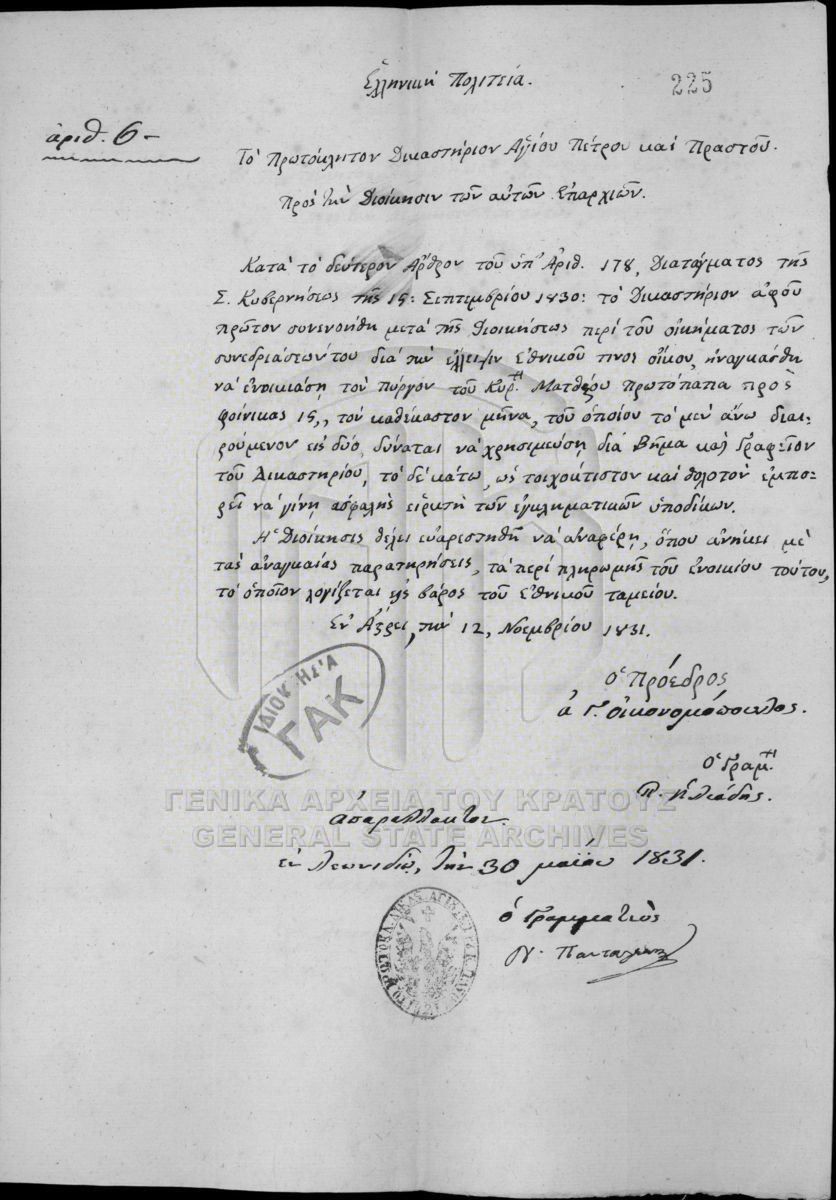 Ἑλληνικὴ Πολιτεία.
225
ἀριθ. 6-
Τὸ Πρωτόκλητον Δικαστήριον Ἁγίου Πέτρου καὶ Πραστοῦ.
Πρὸς τὴν Διοίκησιν τῶν αὐτῶν Ἐπαρχιῶν.
Κατὰ τὸ δεύτερον Ἄρθρον τοῦ ὑπ' Ἀριθ. 178, Διατάγματος τῆς
Σ. Κυβερνήσεως τῆς 15: Σεπτεμβρίου 1830: τὸ Δικαστήριον ἀφοῦ
πρῶτον συνενοήθη μετὰ τῆς Διοικήσεως περὶ τοῦ οἰκήματος τῶν
συνεδριάσεών του διὰ τὴν ἔλλειψιν Ἐθνικοῦ τινος οἴκου, ἠναγκάσθη
νὰ ἐνοικιάσῃ τὸν πύργον τοῦ Κυρ. Ματθαίου πρωτόπαπα πρὸς
φοίνικας 15,, τὸν καθέκαστον μῆνα, τοῦ ὁποίου τὸ μὲν ἄνω διαι-
ρούμενον εἰς δύο, δύναται νὰ χρησιμεύσῃ διὰ Βῆμα καὶ Γραφεῖον
τοῦ Δικαστηρίου, τὸ δὲ κάτω, ὡς τοιχόκτιστον καὶ θολοτὸν ἐμπο-
ρεῖ νὰ γίνῃ ἀσφαλὴς εἱρκτὴ τῶν ἐγκληματικῶν ὑποδίκων.
Ἡ Διοίκησις θέλει εὐαρεστηθῆ νὰ ἀναφέρῃ, ὅπου ἀνήκει μὲ
τὰς ἀναγκαίας παρατηρήσεις, τὰ περὶ πληρωμῆς τοῦ ἐνοικίου τούτου,
τὸ ὁποῖον λογίζεται εἰς βάρος τοῦ Ἐθνικοῦ ταμείου.
Ἐν , τὴν 12, Νοεμβρίου 1831.
Ὁ Πρόεδρος
Γ. Οἰκονομόπουλος.
Ὁ Γραμ.
Π. Ἠλιάδης.
ΙΔΙΟΚΤΗΣΙΑ
ΓΑΚ
ΓΕΝΙΚΑ ΑΡΧΕΙΑ ΤΟΥ ΚΡΑΤΟΥΣ
GENERAL STATE ARCHIVES
ἀπαράλλακτον.
ἐν Λεωνιδίῳ, τὴν 30 μαΐου 1831.
ὁ Γραμματεὺς